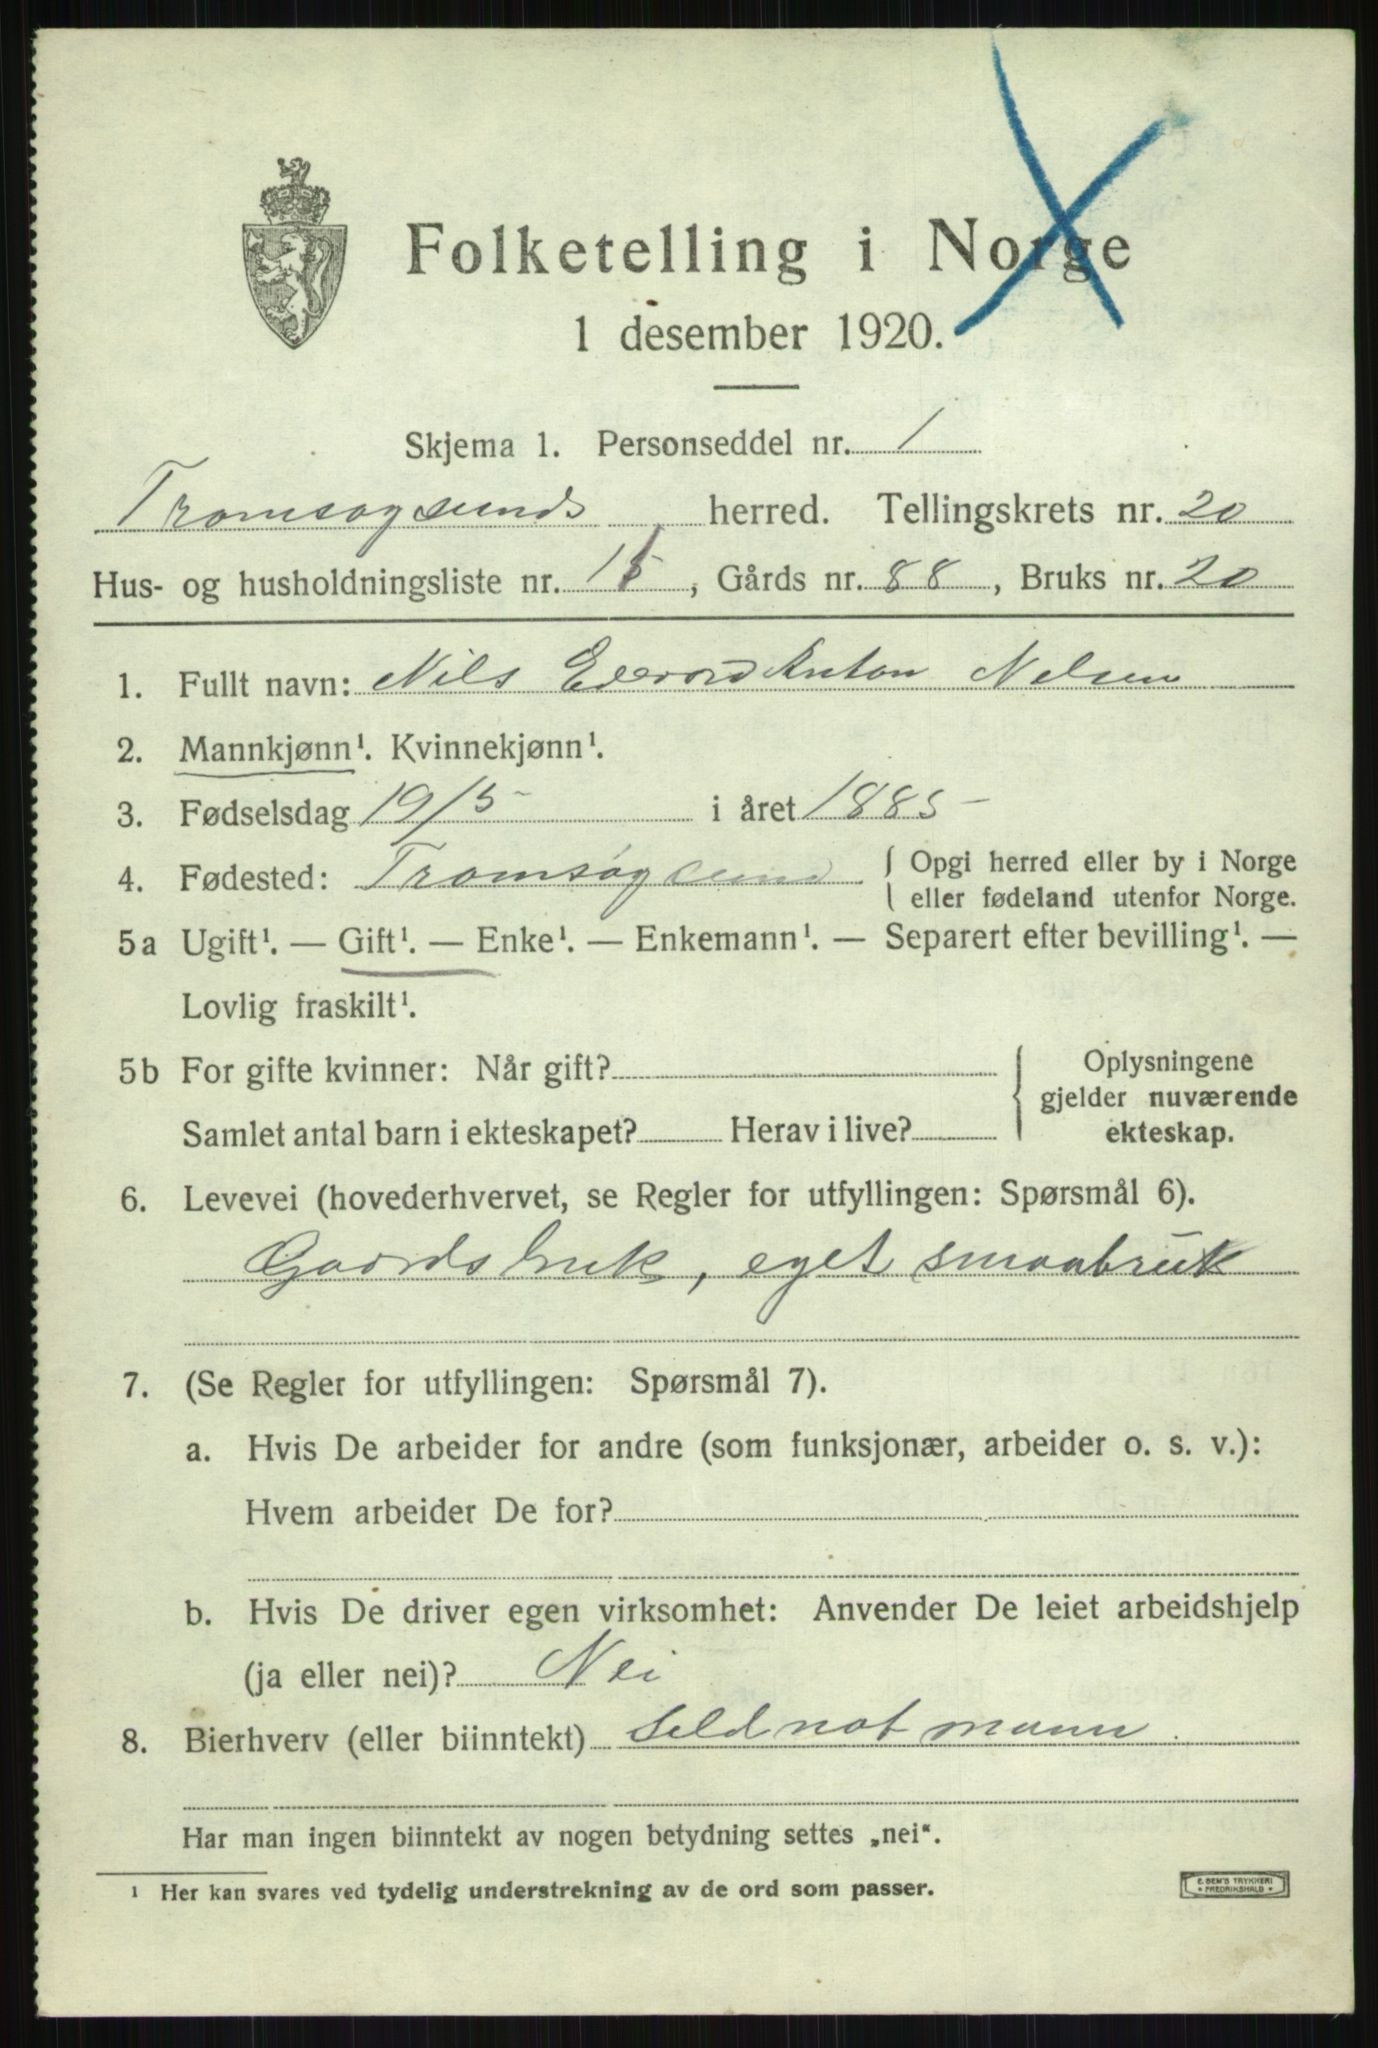 Folketelling i Norge
1 desember 1920.
Skjema 1. Personseddel nr. 1
Tromsøysunds herred. Tellingskrets nr. 20
Hus- og husholdningsliste nr. 15, Gårds nr. 88, Bruks nr. 20
1. Fullt navn: Nils Edvard Anton Nelsen
2. Mannkjønn¹. Kvinnekjønn¹.
3. Fødselsdag 19/5 i året 1885
4. Fødested: Tromsøysund { Opgi herred eller by i Norge
eller fødeland utenfor Norge.
5a Ugift¹. — Gift¹. — Enke¹. — Enkemann¹. — Separert efter bevilling¹. —
Lovlig fraskilt¹.
5b For gifte kvinner: Når gift? } Oplysningene
gjelder nuværende
Samlet antal barn i ekteskapet? Herav i live? ekteskap.
6. Levevei (hovederhvervet, se Regler for utfyllingen: Spørsmål 6).
Gaardsbruk, eget smaabruk
7. (Se Regler for utfyllingen: Spørsmål 7).
a. Hvis De arbeider for andre (som funksjonær, arbeider o. s. v.):
Hvem arbeider De for?
b. Hvis De driver egen virksomhet: Anvender De leiet arbeidshjelp
(ja eller nei)? Nei
8. Bierhverv (eller biinntekt) Sildnotmann.
Har man ingen biinntekt av nogen betydning settes „nei“.
¹ Her kan svares ved tydelig understrekning av de ord som passer.
E. SEM'S TRYKKERI
FREDRIKSHALD